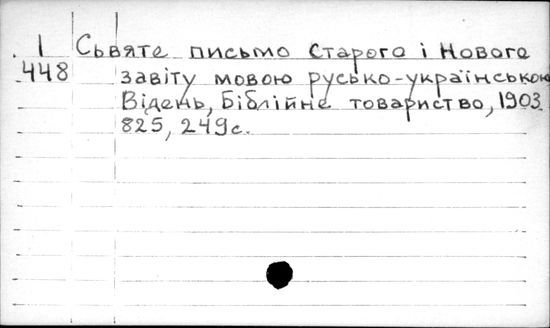 I Сьвяте письмо Старого і Нового
448 завіту мовою русько-українською
Відень, Біблійне товариство, 1903
825, 249с.